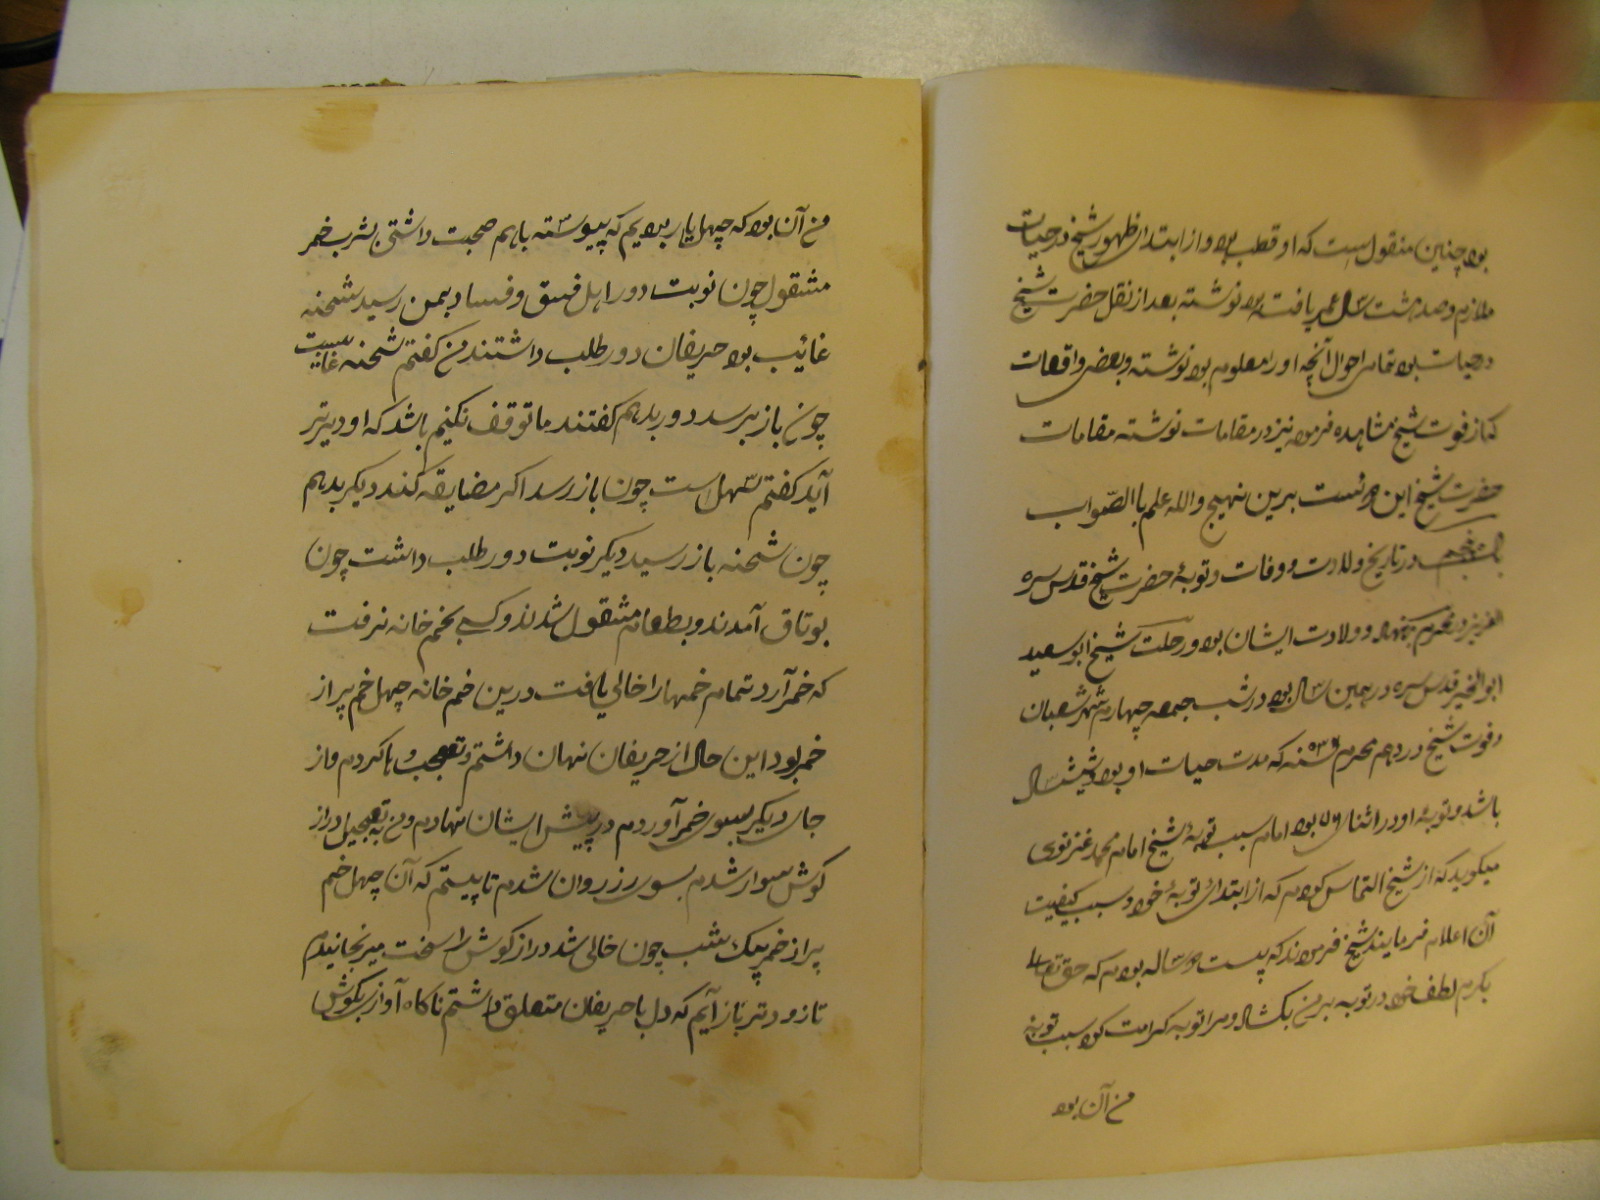 بود چنین منقول است که او قطب بود و از ابتدای ظهور شیخ در حیات
ملازم و صد هشت سال عمر یافته بود نوشته بعد از نقل حضرت شیخ
در حیات بود تمامی احوال آنچه او را معلوم بود نوشته و بعضی واقعات
که از فوت شیخ مشاهده فرمود نیز در مقامات نوشته مقامات
حضرت شیخ این است برین نهج والله علم با الصّواب
باب پنجم در تاریخ ولادت و وفات و توبهٔ حضرت شیخ قدس سره
العزیز در محرم ولادت ایشان بود و رحلت شیخ ابو سعید
ابو الخیر قدس سره در همین سال بود در شب جمعه چهارم شهر شعبان
و فوت شیخ در دهم محرم سنه ۵۳۶ که مدت حیات او بود سال
باشد و توبهٔ او در اثنای بود اما سبب توبهٔ شیخ امام محمد غزنوی
میکوید که از شیخ التماس کردم که از ابتدای توبهٔ خود و سبب کیفیت
آن اعلام فرمایند شیخ فرمودند که بیست و دو ساله بودم که حق تعالی
بکرم لطف خود در توبه بر من بکشاد و مرا توبه کرامت کرد سبب توبهٔ
من آن بود
من آن بود که چهل یار بودیم که پیوسته باهم صحبت داشتی بشرب خمر
مشغول چون نوبت دور اهل فسق و فساد بمن رسید شحنه
غائیب بود حریفان دور طلب داشتند من کفتم شحنه غایبست
چون باز برسد دور بدهم کفتند ما توقف نکنیم باشد که او دیرتر
آید کفتم سهل است چون باز رسد اکر مضایقه کند دیکر بدهم
چون شحنه باز رسید دیکر نوبت دور طلب داشت چون
بوتاق آمدند و بطعام مشغول شدند و کسی بخم خانه نرفت
که خمر آرد تمام خمها را خالی یافت درین خم خانه چهل خم پر از
خمر بود این حال از حریفان نهان داشتم و تعجب ها کردم و از
جای دیکر سبوی خمر آوردم در پیش ایشان نهادم و من به تعجیل دراز
کوش سوار شدم بسوی رز روان شدم تا بینم که آن چهل خم
پر از خمر بیک شب چون خالی شد دراز کوش را سخت میرنجانیدم
تا زودتر باز آیم که دل با حریفان متعلق داشتم ناکاه آوازی بکوش